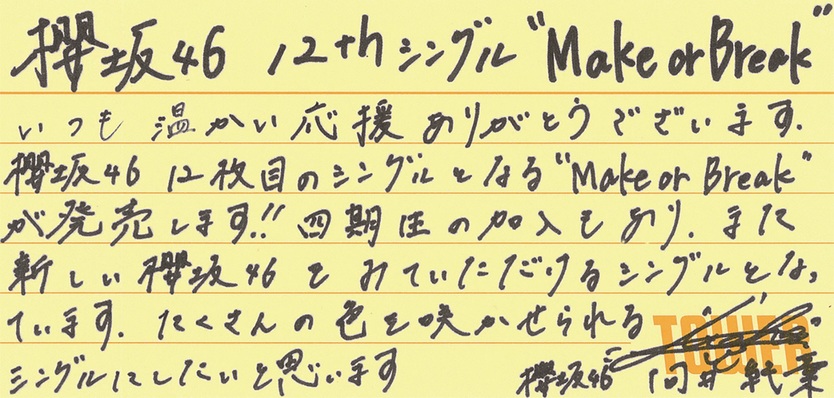 櫻坂46 12thシングル"Make or Break"
いつも温かい応援ありがとうございます.
櫻坂46 12枚目のシングルとなる"Make or Break"
が発売します!! 四期生の加入もあり、また
新しい櫻坂46をみていただけるシングルとなっ
ています. たくさんの色を咲かせられる
TOWER
シングルにしたいと思います
櫻坂46 向井純葉